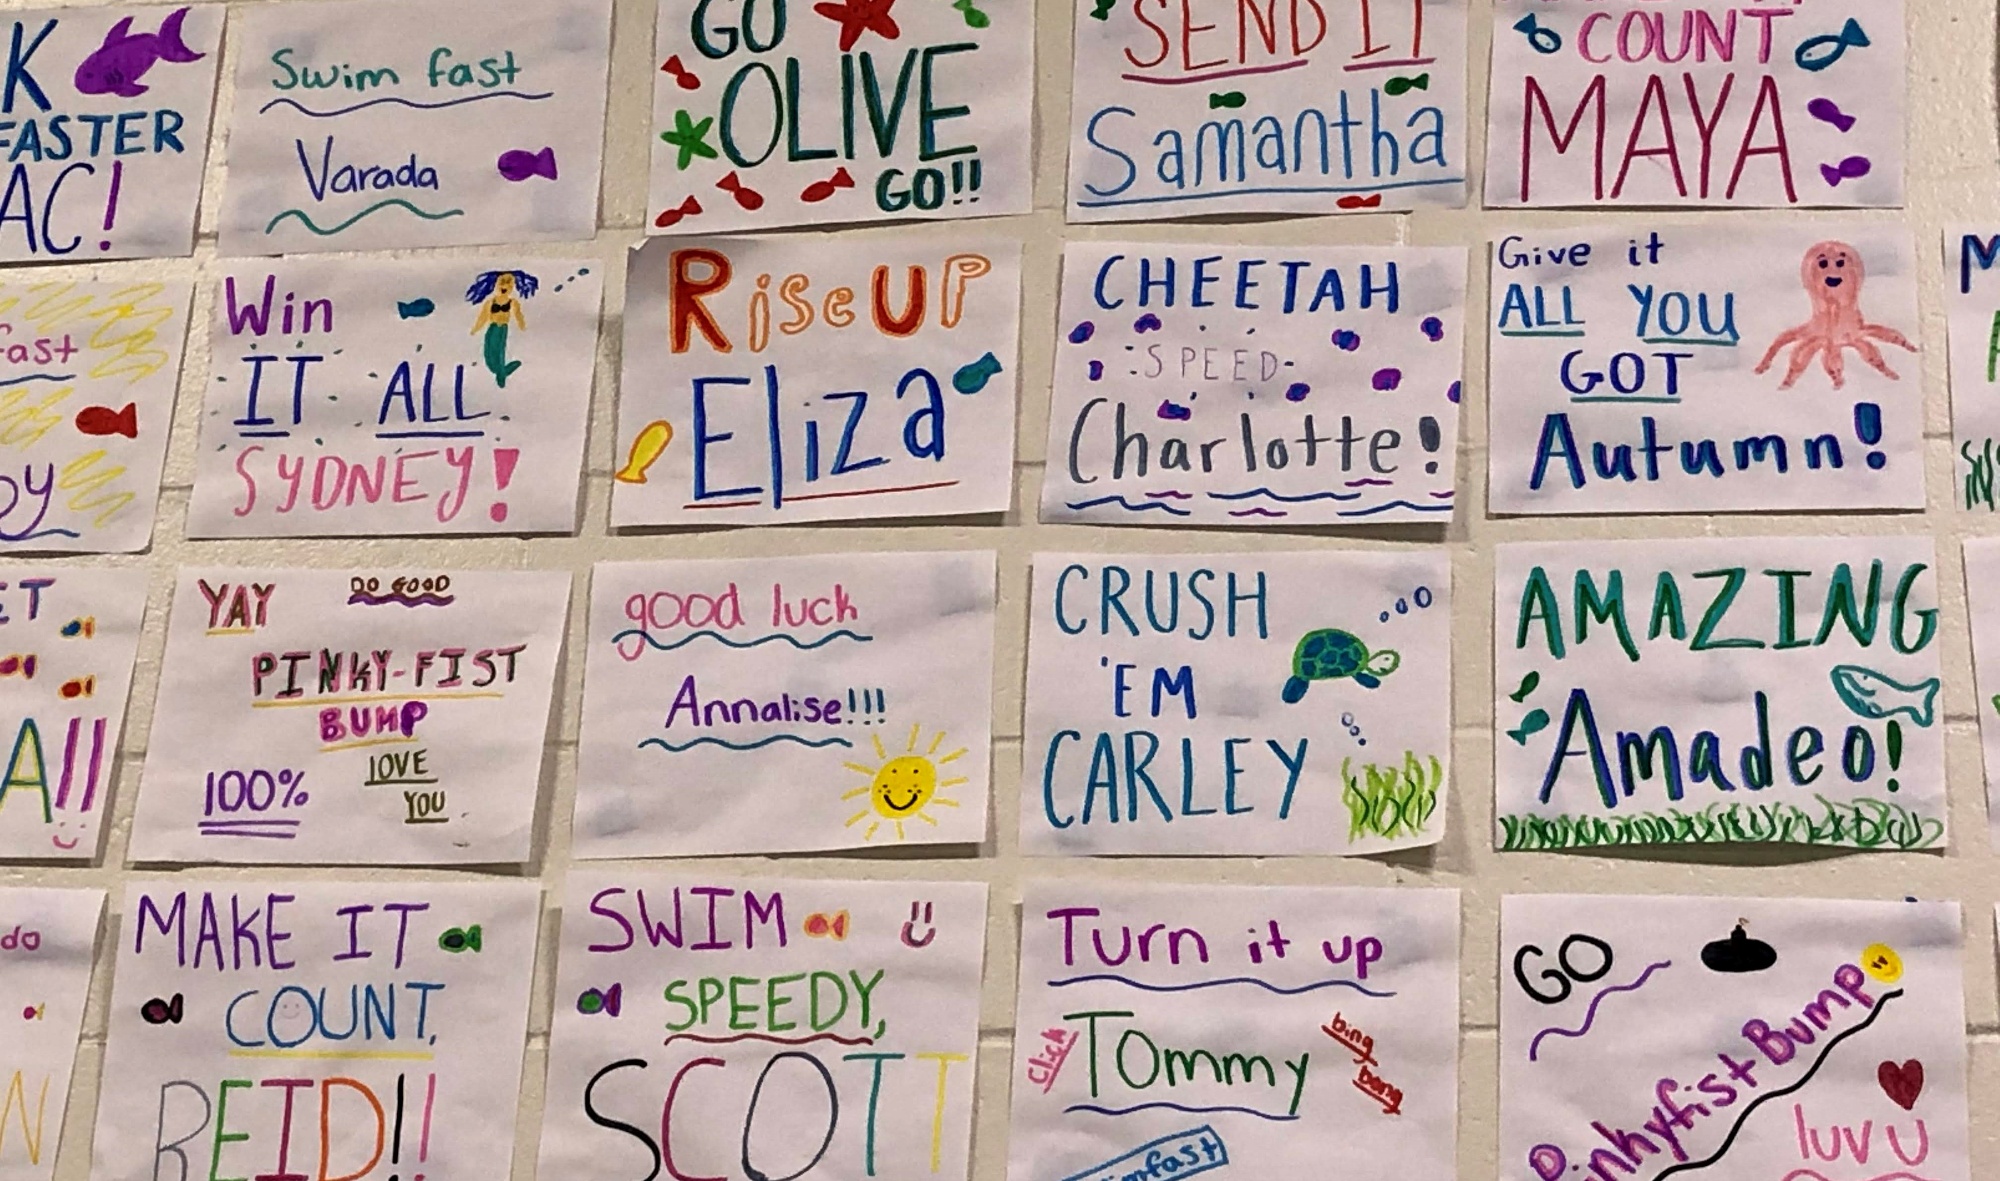 K
FASTER
AC!
Swim fast
Varada
GO
OLIVE
GO!!
SEND IT
Samantha
COUNT
MAYA
fast
Win
IT ALL
SYDNEY!
Rise UP
Eliza
CHEETAH
SPEED
Charlotte!
Give it
ALL YOU
GOT
Autumn!
YAY
DO GOOD
PINKY-FIST
BUMP
100%
LOVE
YOU
good luck
Annalise!!!
CRUSH
'EM
CARLEY
AMAZING
Amadeo!
do
MAKE IT
COUNT,
REID!!
SWIM
SPEEDY,
SCOTT
Turn it up
Click
Tommy
bing
bang
GO
Pinkyfist Bump
luv u